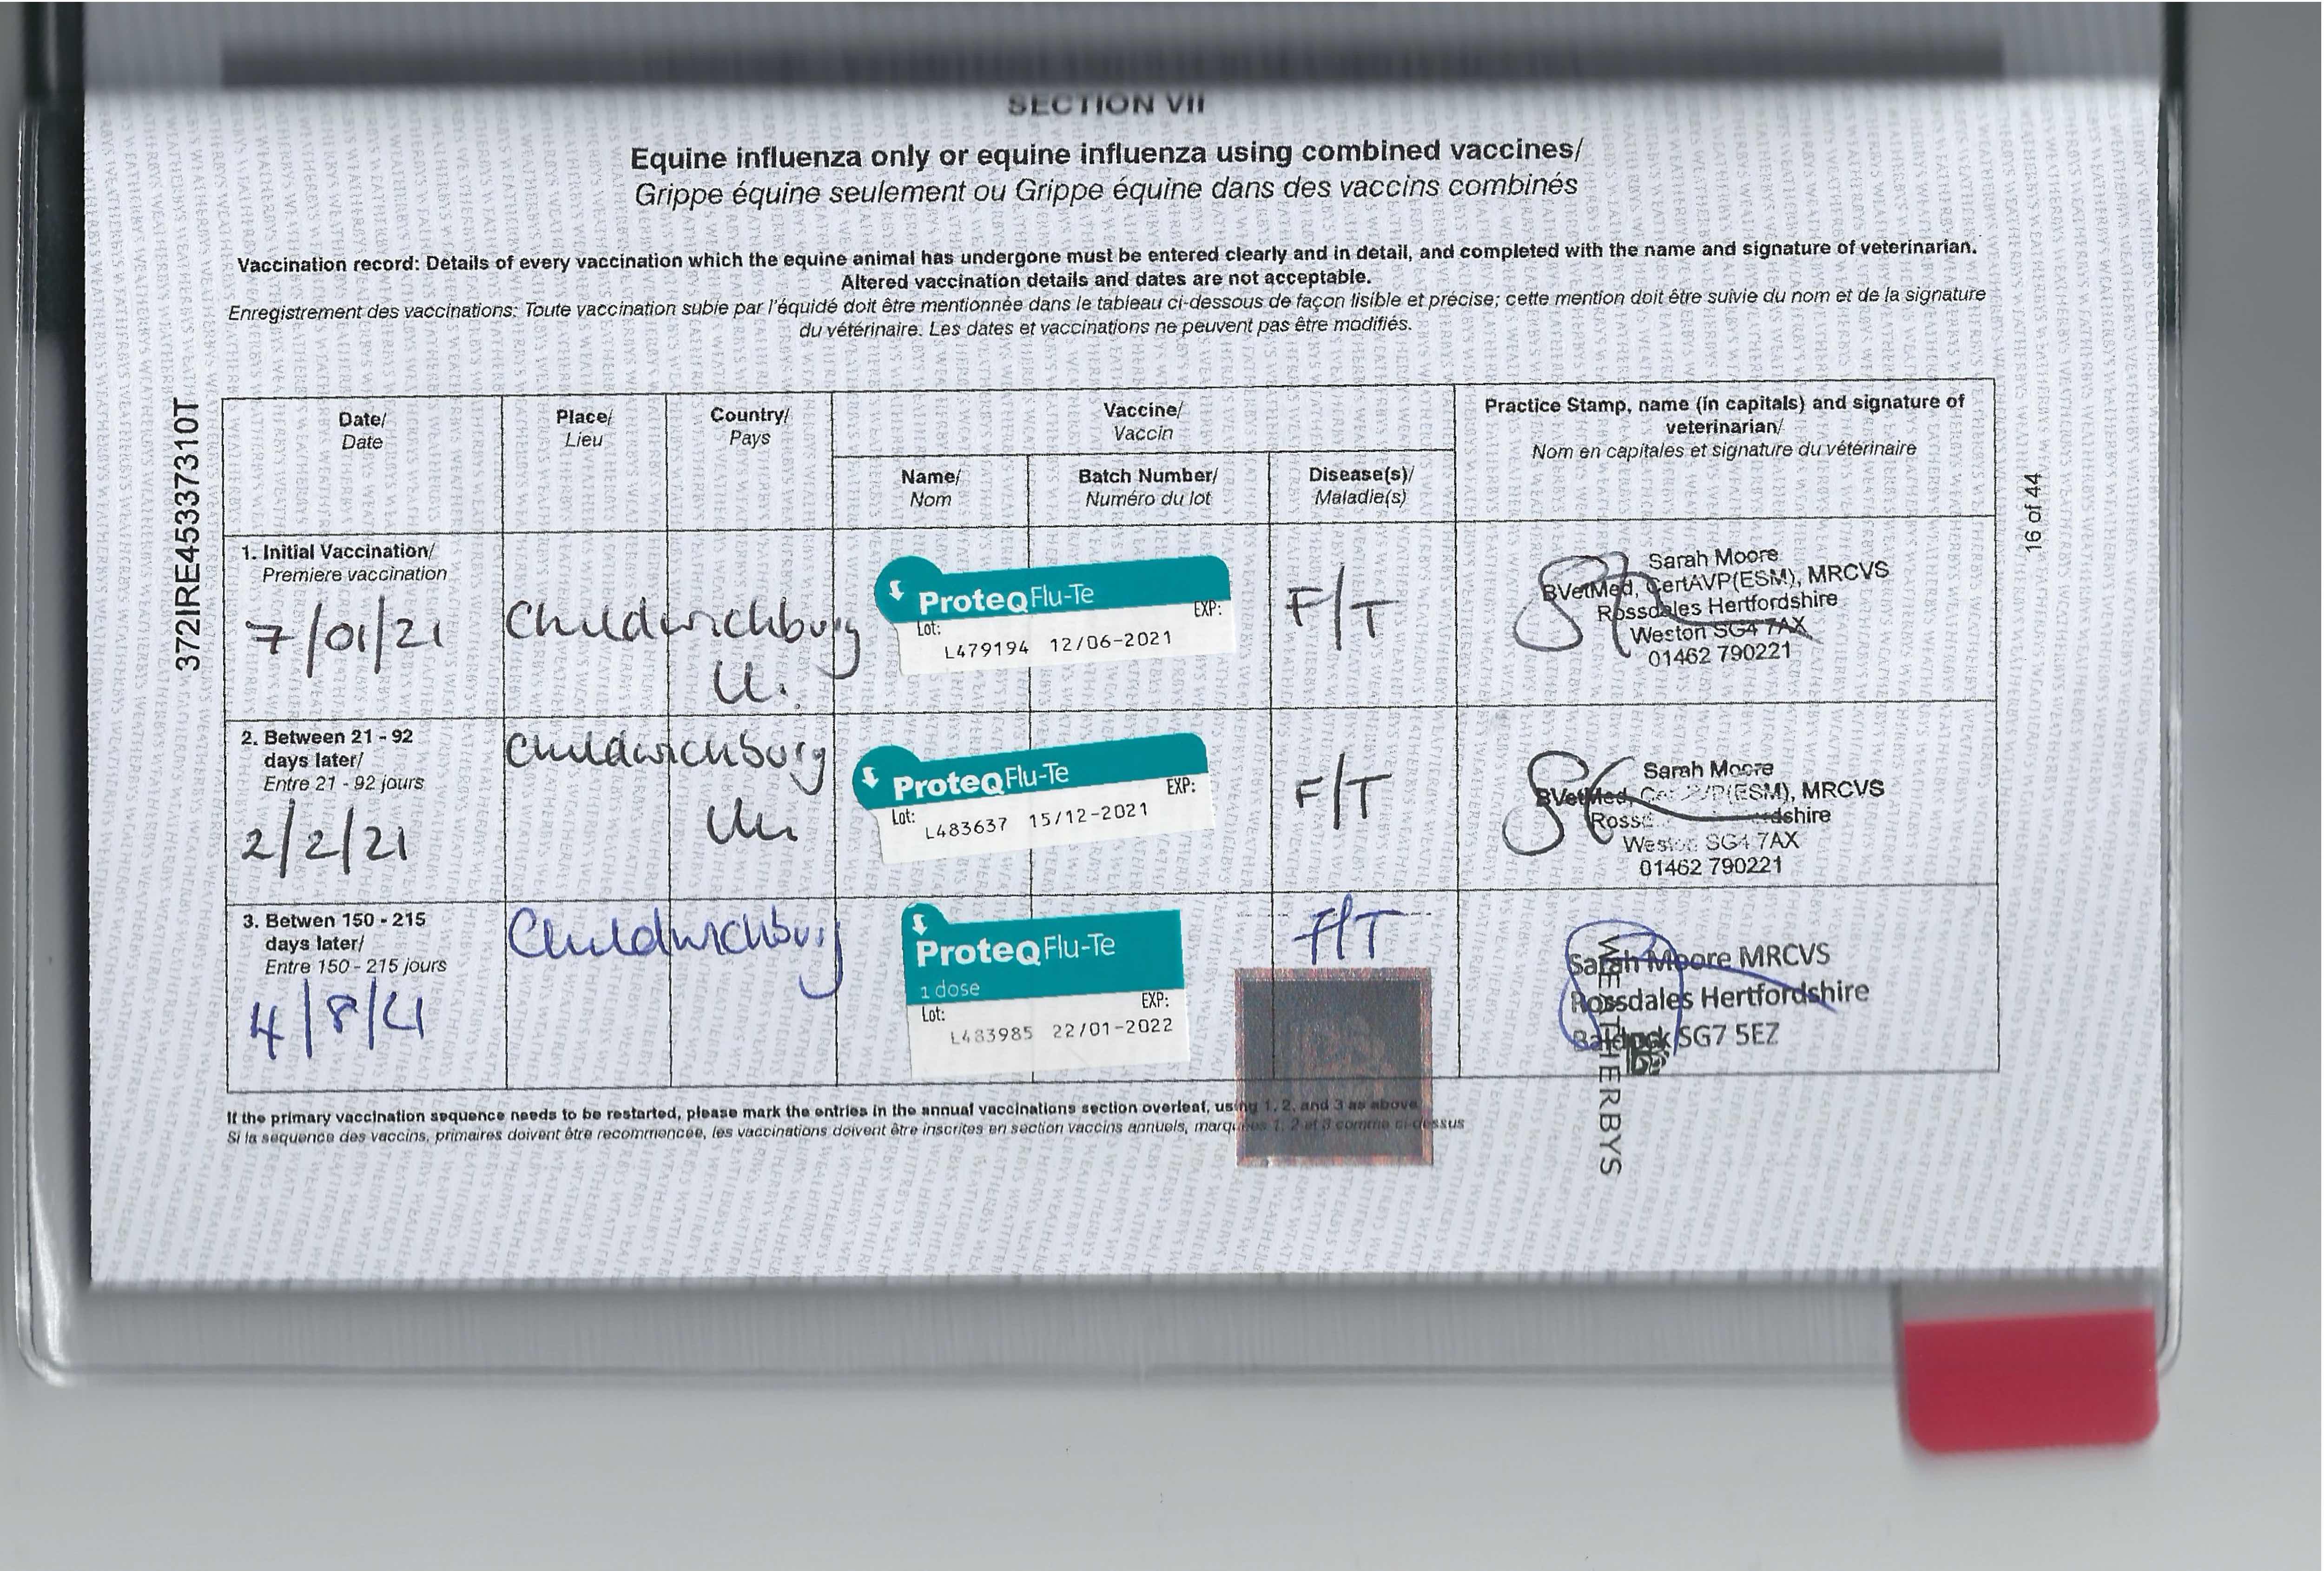 SECTION VII
Equine influenza only or equine influenza using combined vaccines/
Grippe équine seulement ou Grippe équine dans des vaccins combinés
Vaccination record: Details of every vaccination which the equine animal has undergone must be entered clearly and in detail, and completed with the name and signature of veterinarian.
Altered vaccination details and dates are not acceptable.
Enregistrement des vaccinations: Toute vaccination subie par l'équidé doit être mentionnée dans le tableau ci-dessous de façon lisible et précise; cette mention doit être suivie du nom et de la signature
du vétérinaire. Les dates et vaccinations ne peuvent pas être modifiés.
372IRE45337310T
16 of 44
Date/
Date
Place/
Lieu
Country/
Pays
Vaccine/
Vaccin
Name/
Nom
Batch Number/
Numéro du lot
Disease(s)/
Maladie(s)
Practice Stamp, name (in capitals) and signature of
veterinarian/
Nom en capitales et signature du vétérinaire
1. Initial Vaccination/
Premiere vaccination
7/01/21
Childwickbury
ProteqFlu-Te
Lot: EXP:
L479194 12/06-2021
F/T
Sarah Moore
BVetMed, CertAVP(ESM), MRCVS
Rossdales Hertfordshire
Weston SG4 7AX
01462 790221
2. Between 21 - 92
days later/
Entre 21 - 92 jours
2/2/21
Childwickbury
ProteqFlu-Te
Lot: EXP:
L483637 15/12-2021
F/T
Sarah Moore
BVetMed, MRCVS
Weston SG4 7AX
01462 790221
3. Betwen 150 - 215
days later/
Entre 150 - 215 jours
4/8/21
Childwickbury
ProteqFlu-Te
1 dose
Lot: EXP:
L483985 22/01-2022
F/T
Sarah Moore MRCVS
Rossdales Hertfordshire
Baldock SG7 5EZ
WEATHERBYS
If the primary vaccination sequence needs to be restarted, please mark the entries in the annual vaccinations section overleaf, using 1, 2, and 3 as above
Si la sequence des vaccins, primaires doivent être recommencée, les vaccinations doivent être inscrites en section vaccins annuels, marquées 1, 2 et 3 comme ci-dessus